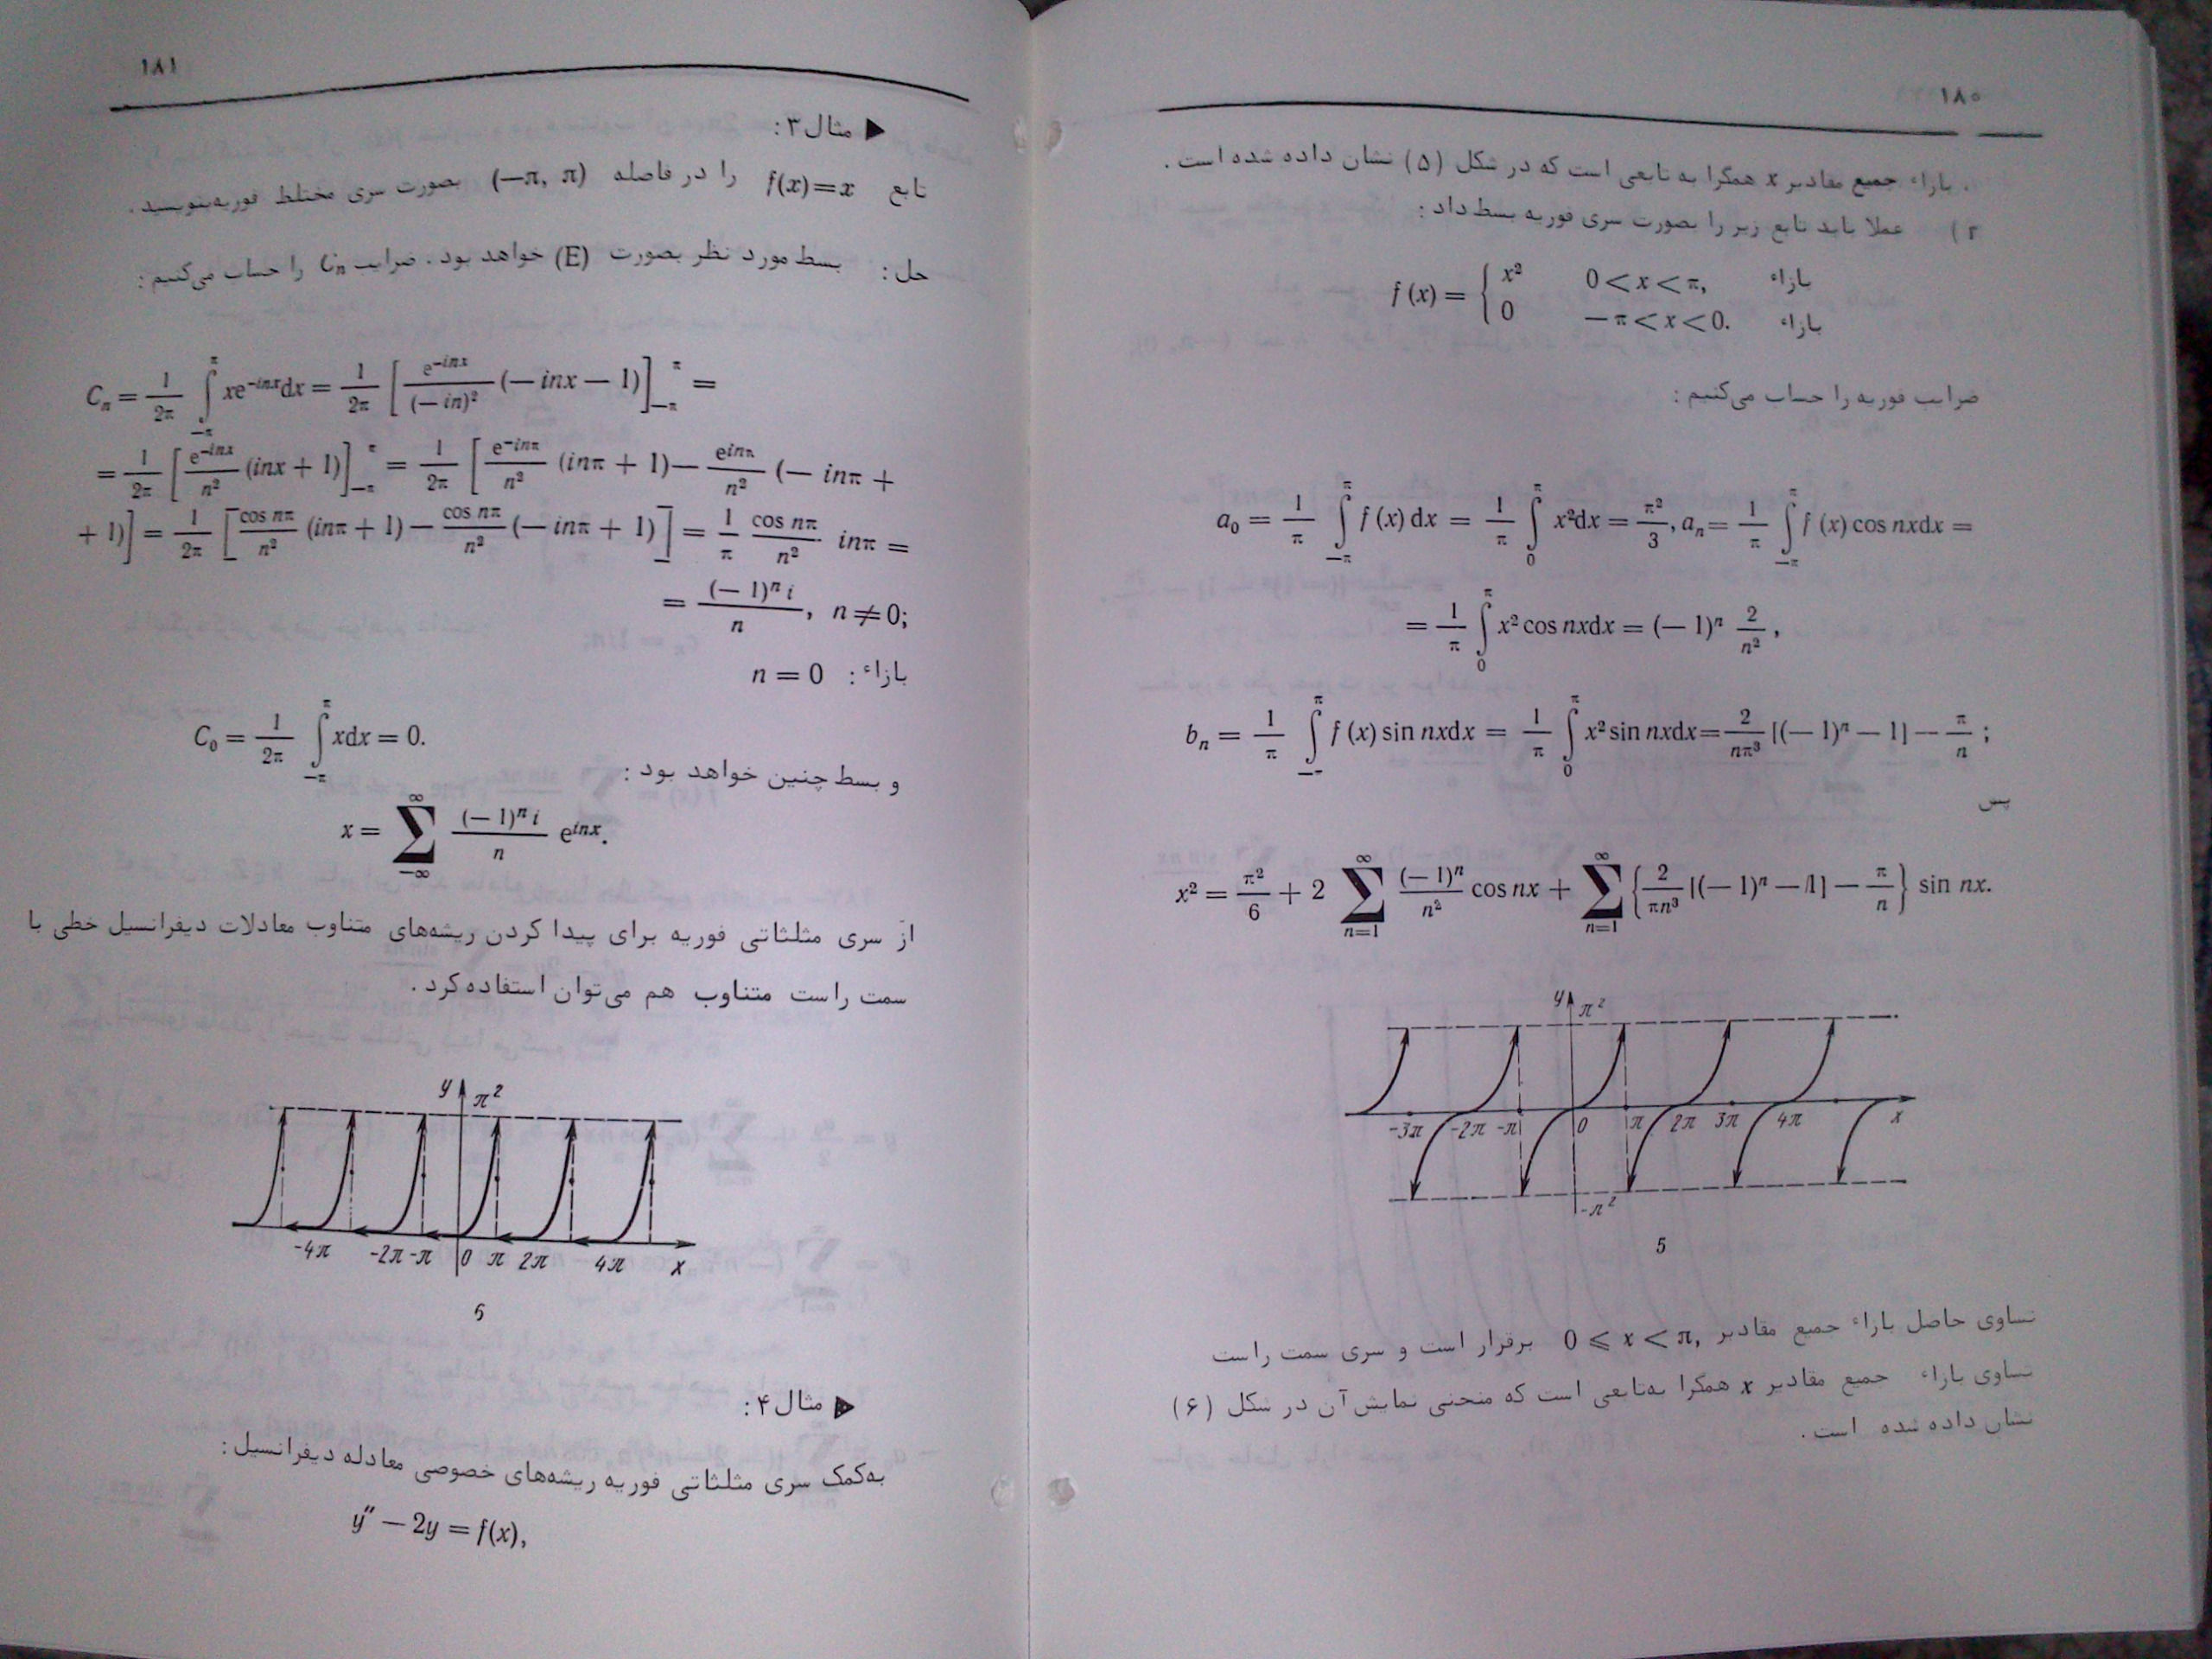 ۱۸۰
. بازاء جمیع مقادیر x همگرا به تابعی است که در شکل (۵) نشان داده شده است .
۲) عملا باید تابع زیر را بصورت سری فوریه بسط داد :
f (x) = { x² 0 < x < π, بازاء
0 — π < x < 0. بازاء
ضرایب فوریه را حساب می‌کنیم :
a₀ = 1/π ∫_{—π}^{π} f (x) dx = 1/π ∫_0^π x²dx = π²/3 , aₙ = 1/π ∫_{—π}^{π} f (x) cos nxdx =
= 1/π ∫_0^π x² cos nxdx = (— 1)ⁿ 2/n² ,
bₙ = 1/π ∫_{—π}^{π} f (x) sin nxdx = 1/π ∫_0^π x² sin nxdx = 2/nπ³ [(— 1)ⁿ — 1] — π/n ;
پس
x² = π²/6 + 2 ∑_{n=1}^{∞} (— 1)ⁿ/n² cos nx + ∑_{n=1}^{∞} { 2/πn³ [(— 1)ⁿ — 1] — π/n } sin nx.
y π²
-3π -2π -π 0 π 2π 3π 4π x
-π²
5
تساوی حاصل بازاء جمیع مقادیر 0 ⩽ x < π, برقرار است و سری سمت راست
تساوی بازاء جمیع مقادیر x همگرا به‌تابعی است که منحنی نمایش آن در شکل (۶)
نشان داده شده است .
۱۸۱
◀ مثال ۳ :
تابع f(x)=x را در فاصله (—π, π) بصورت سری مختلط فوریه بنویسید .
حل : بسط مورد نظر بصورت (E) خواهد بود . ضرایب Cₙ را حساب می‌کنیم :
Cₙ = 1/2π ∫_{—π}^{π} xe^{—inx}dx = 1/2π [ e^{—inx}/(— in)² (— inx — 1) ]_{—π}^{π} =
= 1/2π [ e^{—inx}/n² (inx + 1) ]_{—π}^{π} = 1/2π [ e^{—inπ}/n² (inπ + 1) — e^{inπ}/n² (— inπ +
+ 1) ] = 1/2π [ cos nπ/n² (inπ + 1) — cos nπ/n² (— inπ + 1) ] = 1/π cos nπ/n² inπ =
= (— 1)ⁿ i/n , n ≠ 0;
بازاء : n = 0
C₀ = 1/2π ∫_{—π}^{π} xdx = 0.
و بسط چنین خواهد بود :
x = ∑_{—∞}^{∞} (— 1)ⁿ i/n e^{inx}.
از سری مثلثاتی فوریه برای پیدا کردن ریشه‌های متناوب معادلات دیفرانسیل خطی با
سمت راست متناوب هم می‌توان استفاده کرد .
y π²
-4π -2π -π 0 π 2π 4π x
6
◀ مثال ۴ :
به‌کمک سری مثلثاتی فوریه ریشه‌های خصوصی معادله دیفرانسیل :
y″ — 2y = f(x),